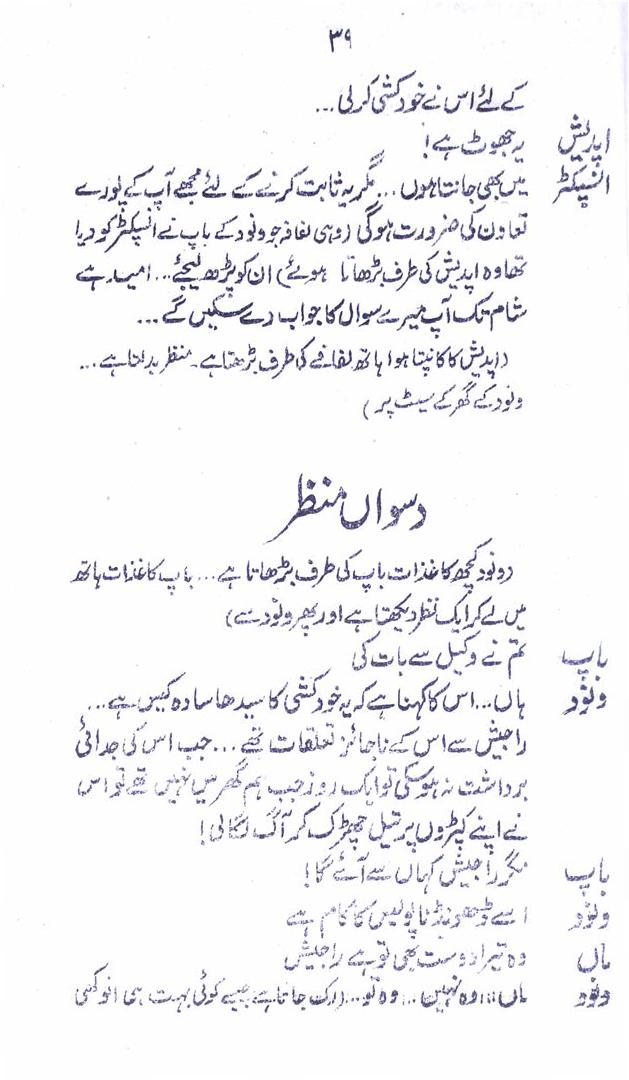 ۳۹
کے لئے اس نے خودکشی کر لی ...
اپدیش یہ جھوٹ ہے!
انسپکٹر میں بھی جانتا ہوں ... مگر یہ ثابت کرنے کے لئے مجھے آپ کے پورے
تعاون کی ضرورت ہوگی (وہی لفافہ جو ونود کے باپ نے انسپکٹر کو دیا
تھا وہ اپدیش کی طرف بڑھاتا ہوئے) ان کو پڑھ لیجئے ... امید ہے
شام تک آپ میرے سوال کا جواب دے سکیں گے ...
(اپدیش کا کانپتا ہوا ہاتھ لفافے کی طرف بڑھتا ہے۔ منظر بدلتا ہے ...
ونود کے گھر کے سیٹ پر)
دسواں منظر
(ونود کچھ کاغذات باپ کی طرف بڑھاتا ہے ... باپ کاغذات ہاتھ
میں لے کر ایک نظر دیکھتا ہے اور پھر ونود سے)
باپ تم نے وکیل سے بات کی
ونود ہاں ... اس کا کہنا ہے کہ یہ خودکشی کا سیدھا سادہ کیس ہے ...
راجیش سے اس کے ناجائز تعلقات تھے ... جب اس کی جدائی
برداشت نہ ہو سکی تو ایک روز جب ہم گھر میں نہیں تھے تو اس
نے اپنے کپڑوں پر تیل چھڑک کر آگ لگا لی!
باپ مگر راجیش کہاں سے آئے گا!
ونود اسے ڈھونڈنا پولیس کا کام ہے
ماں وہ تیرا دوست بھی تو ہے راجیش
ونود ماں!!! وہ نہیں ... وہ تو ... (رک جاتا ہے جیسے کوئی بہت ہی انوکھی